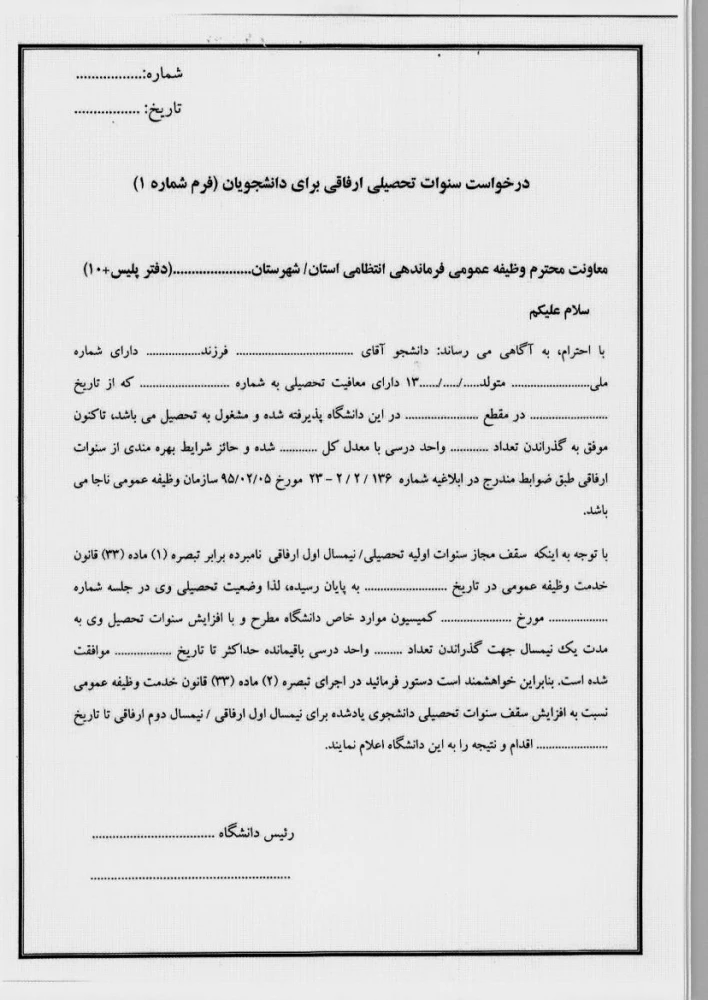 شماره:.................
تاریخ: .................
درخواست سنوات تحصیلی ارفاقی برای دانشجویان (فرم شماره ۱)
معاونت محترم وظیفه عمومی فرماندهی انتظامی استان/ شهرستان.....................(دفتر پلیس+۱۰)
سلام علیکم
با احترام، به آگاهی می رساند: دانشجو آقای ................................ فرزند................ دارای شماره
ملی...................... متولد...../...../.....۱۳ دارای معافیت تحصیلی به شماره ........................ که از تاریخ
...................... در مقطع .................... در این دانشگاه پذیرفته شده و مشغول به تحصیل می باشد، تاکنون
موفق به گذراندن تعداد ........... واحد درسی با معدل کل ........... شده و حائز شرایط بهره مندی از سنوات
ارفاقی طبق ضوابط مندرج در ابلاغیه شماره ۱۳۶ / ۲ / ۲ - ۲۳ مورخ ۹۵/۰۲/۰۵ سازمان وظیفه عمومی ناجا می
باشد.
با توجه به اینکه سقف مجاز سنوات اولیه تحصیلی/ نیمسال اول ارفاقی نامبرده برابر تبصره (۱) ماده (۳۳) قانون
خدمت وظیفه عمومی در تاریخ ........................ به پایان رسیده، لذا وضعیت تحصیلی وی در جلسه شماره
................. مورخ .................... کمیسیون موارد خاص دانشگاه مطرح و با افزایش سنوات تحصیل وی به
مدت یک نیمسال جهت گذراندن تعداد ......... واحد درسی باقیمانده حداکثر تا تاریخ ................. موافقت
شده است. بنابراین خواهشمند است دستور فرمائید در اجرای تبصره (۲) ماده (۳۳) قانون خدمت وظیفه عمومی
نسبت به افزایش سقف سنوات تحصیلی دانشجوی یادشده برای نیمسال اول ارفاقی / نیمسال دوم ارفاقی تا تاریخ
..................... اقدام و نتیجه را به این دانشگاه اعلام نمایند.
رئیس دانشگاه ...................................
.........................................................